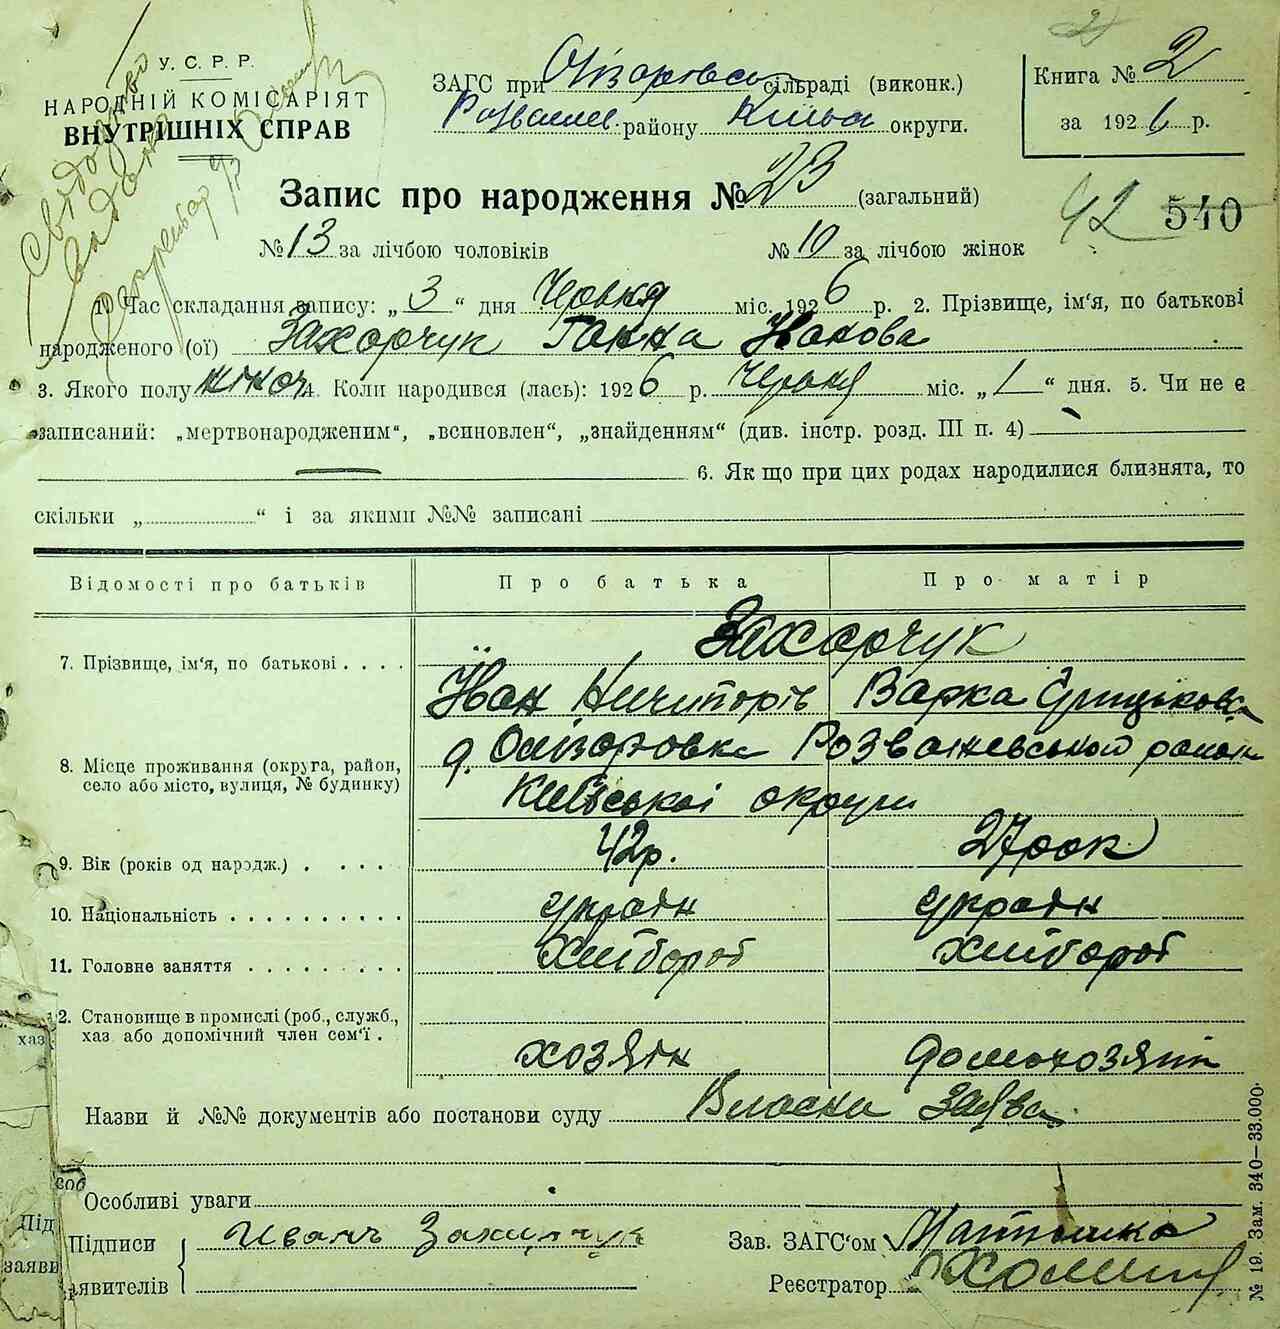 У. С. Р. Р.
НАРОДНІЙ КОМІСАРІЯТ
ВНУТРІШНІХ СПРАВ
Свідоцтво видано
ЗАГС при сільраді (виконк.)
Розважев. району Київськ округи.
Книга № 2
за 1926 р.
Запис про народження № 23 (загальний)
42 540
№ 13 за лічбою чоловіків № 10 за лічбою жінок
1. Час складання запису: „ 3 “ дня Червня міс. 1926 р. 2. Прізвище, ім'я, по батькові
народженого (ої) Захарчук Ганна Иванова
3. Якого полу жіноч 4. Коли народився (лась): 1926 р. Червня міс. „ 1 “ дня. 5. Чи не є
записаний: „мертвонародженим“, „всиновлен“, „знайденням“ (див. інстр. розд. III п. 4)
6. Як що при цих родах народилися близнята, то
скільки „ “ і за якими №№ записані
Відомості про батьків Про батька Про матір
Захарчук
7. Прізвище, ім'я, по батькові . . . .
Иван Ничипорів Варка Грицькова
д. Олізаровка Розважевський район
8. Місце проживання (округа, район,
село або місто, вулиця, № будинку)
Київської округи
9. Вік (років од народж.) . . . . 42р. 27 рок
10. Національність . . . . . . . . . . україн україн
11. Головне заняття . . . . . . . . . хлібороб хлібороб
12. Становище в промислі (роб., служб.,
хаз або допомічний член сем'ї .
хозяїн домохозяїн
Назви й №№ документів або постанови суду Власна Заява
Особливі уваги
Підписи
заявителів
Иванъ Захарчук
Зав. ЗАГС'ом
Реєстратор
№ 19. Зам. 340—33.000.
хаз
соб
Під
заяви